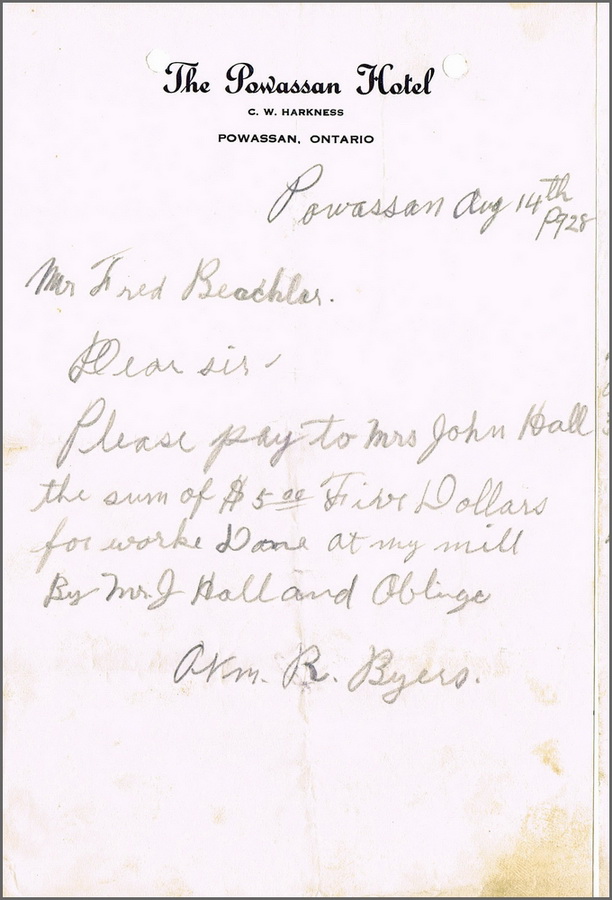 The Powassan Hotel
C. W. HARKNESS
POWASSAN, ONTARIO
Powassan Aug 14th
1928
Mr Fred Beachler.
Dear sir
Please pay to Mrs John Hall
the sum of $5.00 Five Dollars
for worke Done at my mill
By Mr. J Hall and Oblige
R. Byers.